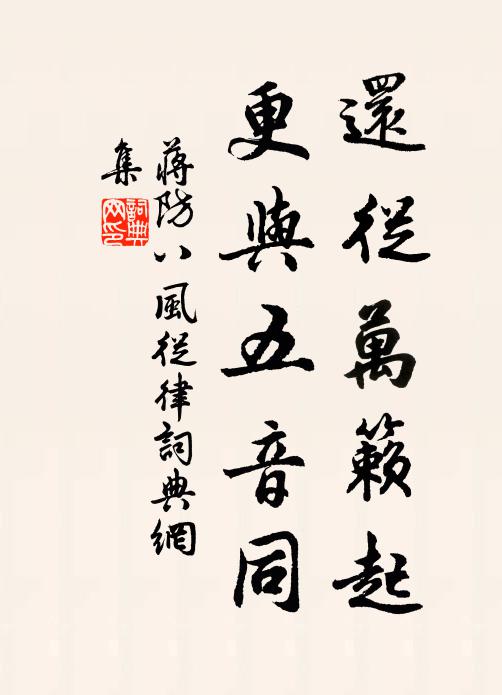 還從萬籟起
更與五音同
蔣防八風從律詞典網
集
詞典
网印